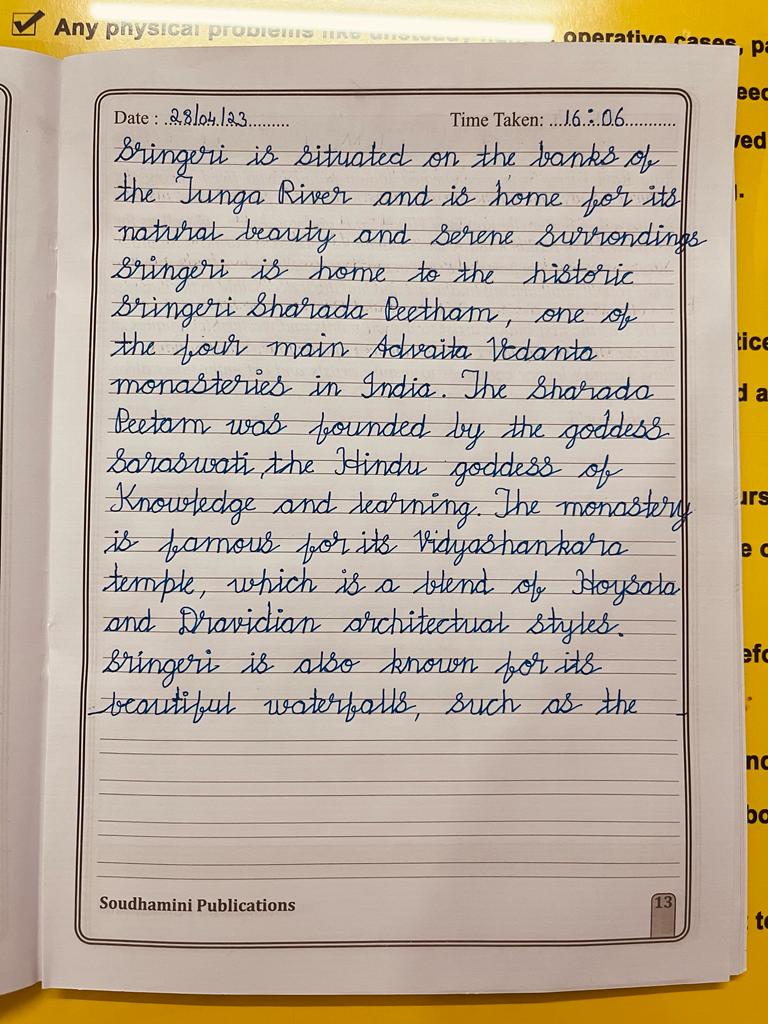 Any physical problems like unsteady
operative cases, pa
Date : 28/04/23
Time Taken: 16:06
Sringeri is situated on the banks of
the Tunga River and is home for its
natural beauty and serene surrondings
Sringeri is home to the historic
Sringeri Sharada Peetham, one of
the four main Advaita Vedanta
monasteries in India. The Sharada
Peetam was founded by the goddess
Saraswati, the Hindu goddess of
Knowledge and learning. The monastery
is famous for its Vidyashankara
temple, which is a blend of Hoysala
and Dravidian architectual styles.
Sringeri is also known for its
beautiful waterfalls, such as the
Soudhamini Publications
13